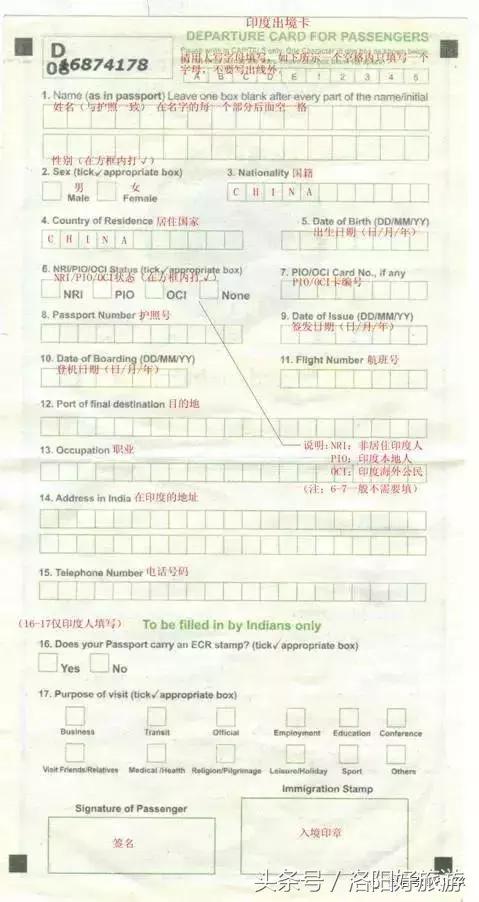 印度出境卡
DEPARTURE CARD FOR PASSENGERS
D
08
16874178
请用大写字母填写, 如下所示一个空格内只填写一个
字母, 不要写出线外
A B C D E 1 2 3 4 5
1. Name (as in passport) Leave one box blank after every part of the name/initial
姓名(与护照一致) 在名字的每一个部分后面空一格
性别(在方框内打√)
2. Sex (tick✓appropriate box)
3. Nationality 国籍
男
Male
女
Female
C H I N A
4. Country of Residence 居住国家
5. Date of Birth (DD/MM/YY)
出生日期(日/月/年)
C H I N A
6. NRI/PIO/OCI Status (tick✓appropriate box)
NRI/PIO/OCI状态(在方框内打√)
7. PIO/OCI Card No., if any
PIO/OCI卡编号
NRI PIO OCI None
8. Passport Number 护照号
9. Date of Issue (DD/MM/YY)
签发日期(日/月/年)
10. Date of Boarding (DD/MM/YY)
登机日期(日/月/年)
11. Flight Number 航班号
12. Port of final destination 目的地
13. Occupation 职业
说明: NRI: 非居住印度人
PIO: 印度本地人
OCI: 印度海外公民
(注: 6-7一般不需要填)
14. Address in India 在印度的地址
15. Telephone Number 电话号码
(16-17仅印度人填写) To be filled in by Indians only
16. Does your Passport carry an ECR stamp? (tick✓appropriate box)
Yes No
17. Purpose of visit (tick✓appropriate box)
Business Transit Official Employment Education Conference
Visit Friends/Relatives Medical /Health Religion/Pilgrimage Leisure/Holiday Sport Others
Immigration Stamp
Signature of Passenger
签名
入境印章
头条号 / 洛阳好旅游